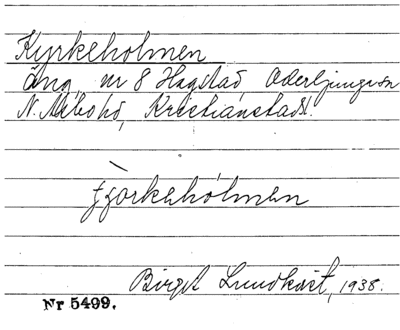 Kyrkeholmen
äng, nr 8 Hagstad, Oderljunga sn
N. Åsbo hd, Kristianstads l.
Birgit Lundkvist, 1938.
Nr 5499.